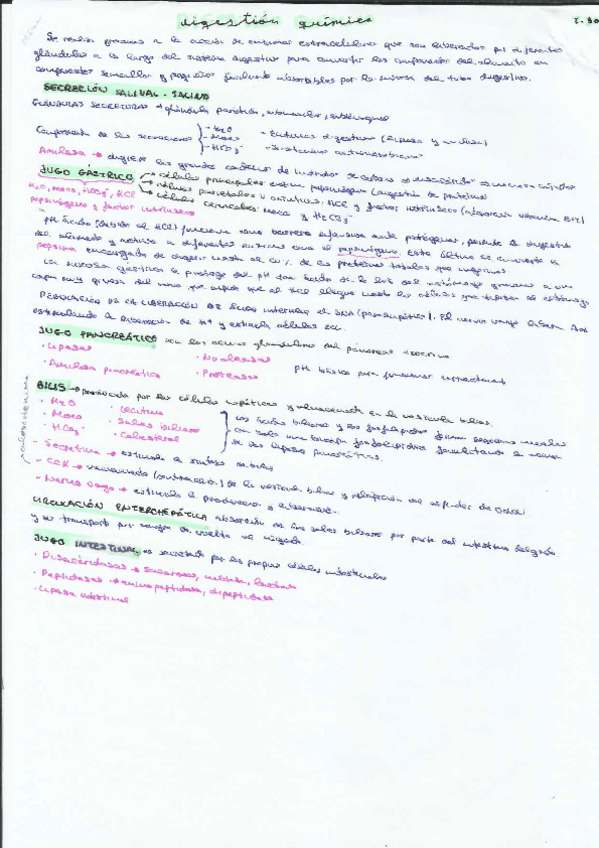 digestión química
Se realiza gracias a la acción de enzimas extracelulares que son liberadas por diferentes
glándulas a lo largo del sistema digestivo para convertir los componentes del alimento en
compuestos sencillos y pequeños fácilmente absorbibles por la mucosa del tubo digestivo.
SECRECIÓN SALIVAL - SALIVA
GLÁNDULAS SECRETORAS → glándula parótida, submaxilar, sublingual
Componentes de las secreciones
- H2O
- Moco
- HCO3-
- Enzimas digestivas
Amilasa → digiere las grandes cadenas de
JUGO GÁSTRICO → células principales: pepsinógeno (digestión de proteínas)
células parietales u oxínticas: HCl y factor intrínseco (absorción vitamina B12)
células cervicales: moco y HCO3-
H2O, moco, HCO3-, HCl
pepsinógeno y factor intrínseco
pH ácido (debido al HCl) funciona como barrera defensiva ante patógenos, permite la digestión
del alimento y activa a diferentes enzimas como el pepsinógeno. Este último se convierte a
pepsina encargada de digerir hasta el % de las proteínas totales que ingerimos
La mucosa gástrica se protege del pH tan ácido de la luz del estómago gracias a una
capa muy gruesa del moco que impide que el HCl llegue hasta las células que tapizan el estómago
REGULACIÓN DE LA LIBERACIÓN DE interviene el SNA (parasimpático). El nervio vago libera Ach
estimulando la liberación de H+ y
JUGO PANCREÁTICO son los acinos glandulares del páncreas exocrino
· Lipasas
· Nucleasas
· Amilasa pancreática
· Proteasas
pH básico para funcionar correctamente
BILIS → producida por las células hepáticas y almacenada en la vesícula biliar.
· H2O
· Lecitina
· Moco
· Sales biliares
· HCO3-
· Colesterol
Los ácidos biliares y los fosfolípidos forman pequeñas micelas
con solo una bicapa fosfolipídica facilitando la acción
de las lipasas pancreáticas.
colecistocinina
- Secretina → estimula la síntesis de bilis
- CCK → vaciamiento (contracción) de la vesícula biliar y relajación del esfínter de Oddi
- Nervio Vago → estimula la producción y
CIRCULACIÓN ENTEROHEPÁTICA absorción de las sales biliares por parte del intestino delgado
y su transporte por sangre de vuelta al hígado.
JUGO INTESTINAL es secretado por las propias células intestinales
· Disacaridasas → sacarasa, maltasa, lactasa
· Peptidasas → aminopeptidasa, dipeptidasa
· Lipasa intestinal